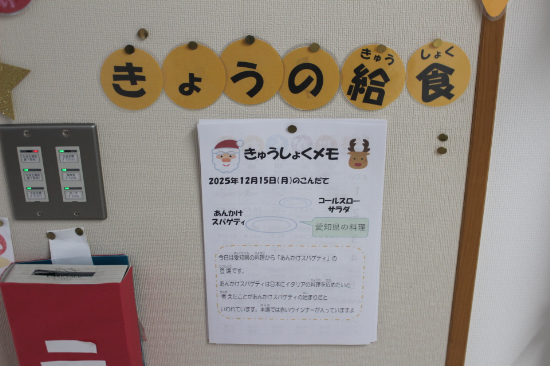 きょうの給食
きゅう しょく
きゅうしょくメモ
2025年12月15日(月)のこんだて
コールスロー
サラダ
あんかけ
スパゲティ
愛知県の料理
今日は愛知県の料理から「あんかけスパゲティ」の
登場です。
あんかけスパゲティは日本にイタリアの料理を広めたいと
考えたことがあんかけスパゲティの始まりだと
いわれています。本場では赤いウインナーが入っていますよ